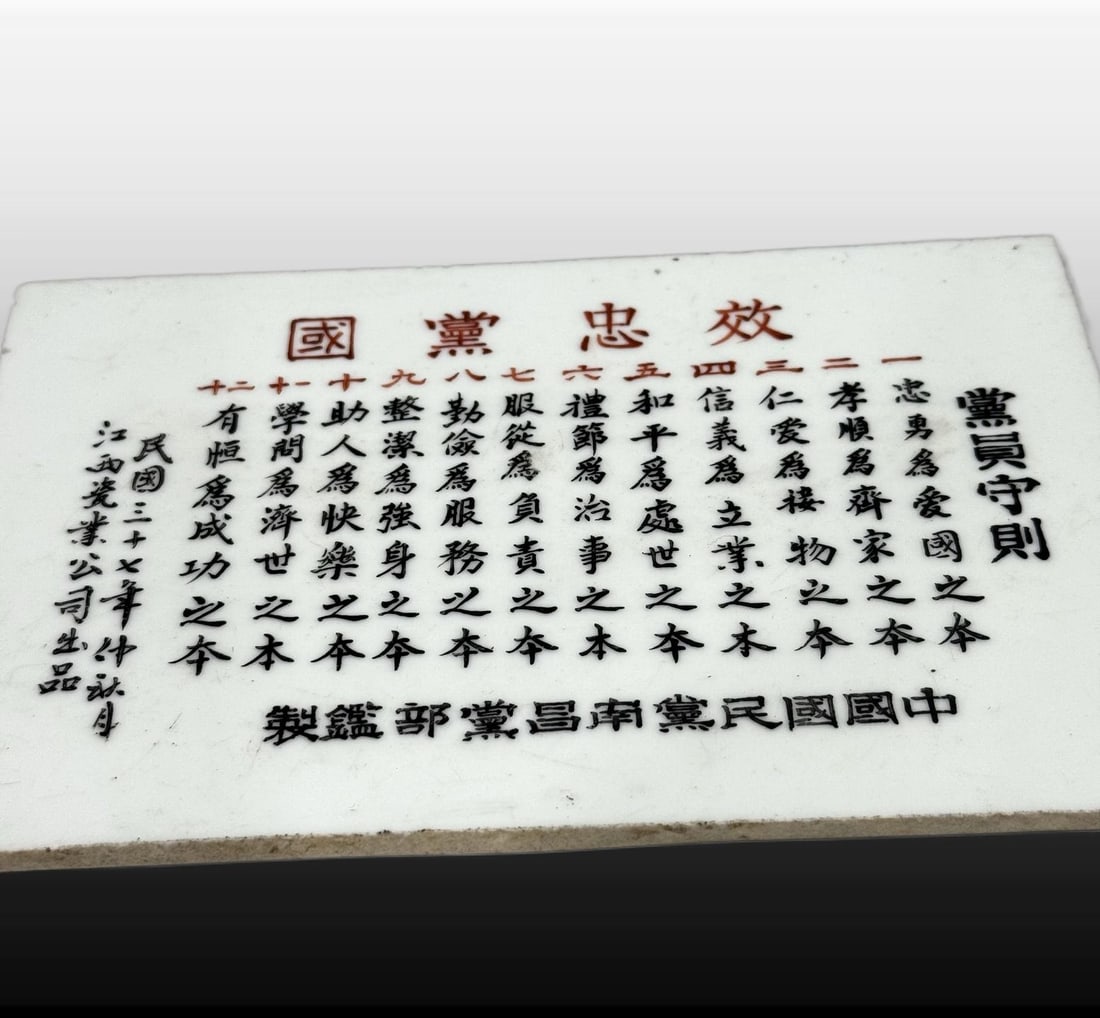 效忠黨國
黨員守則
一 忠勇爲愛國之本
二 孝順爲齊家之本
三 仁愛爲接物之本
四 信義爲立業之本
五 和平爲處世之本
六 禮節爲治事之本
七 服從爲負責之本
八 勤儉爲服務之本
九 整潔爲強身之本
十 助人爲快樂之本
十一 學問爲濟世之本
十二 有恒爲成功之本
民國三十七年仲秋月
江西瓷業公司出品
中國國民黨南昌黨部鑑製